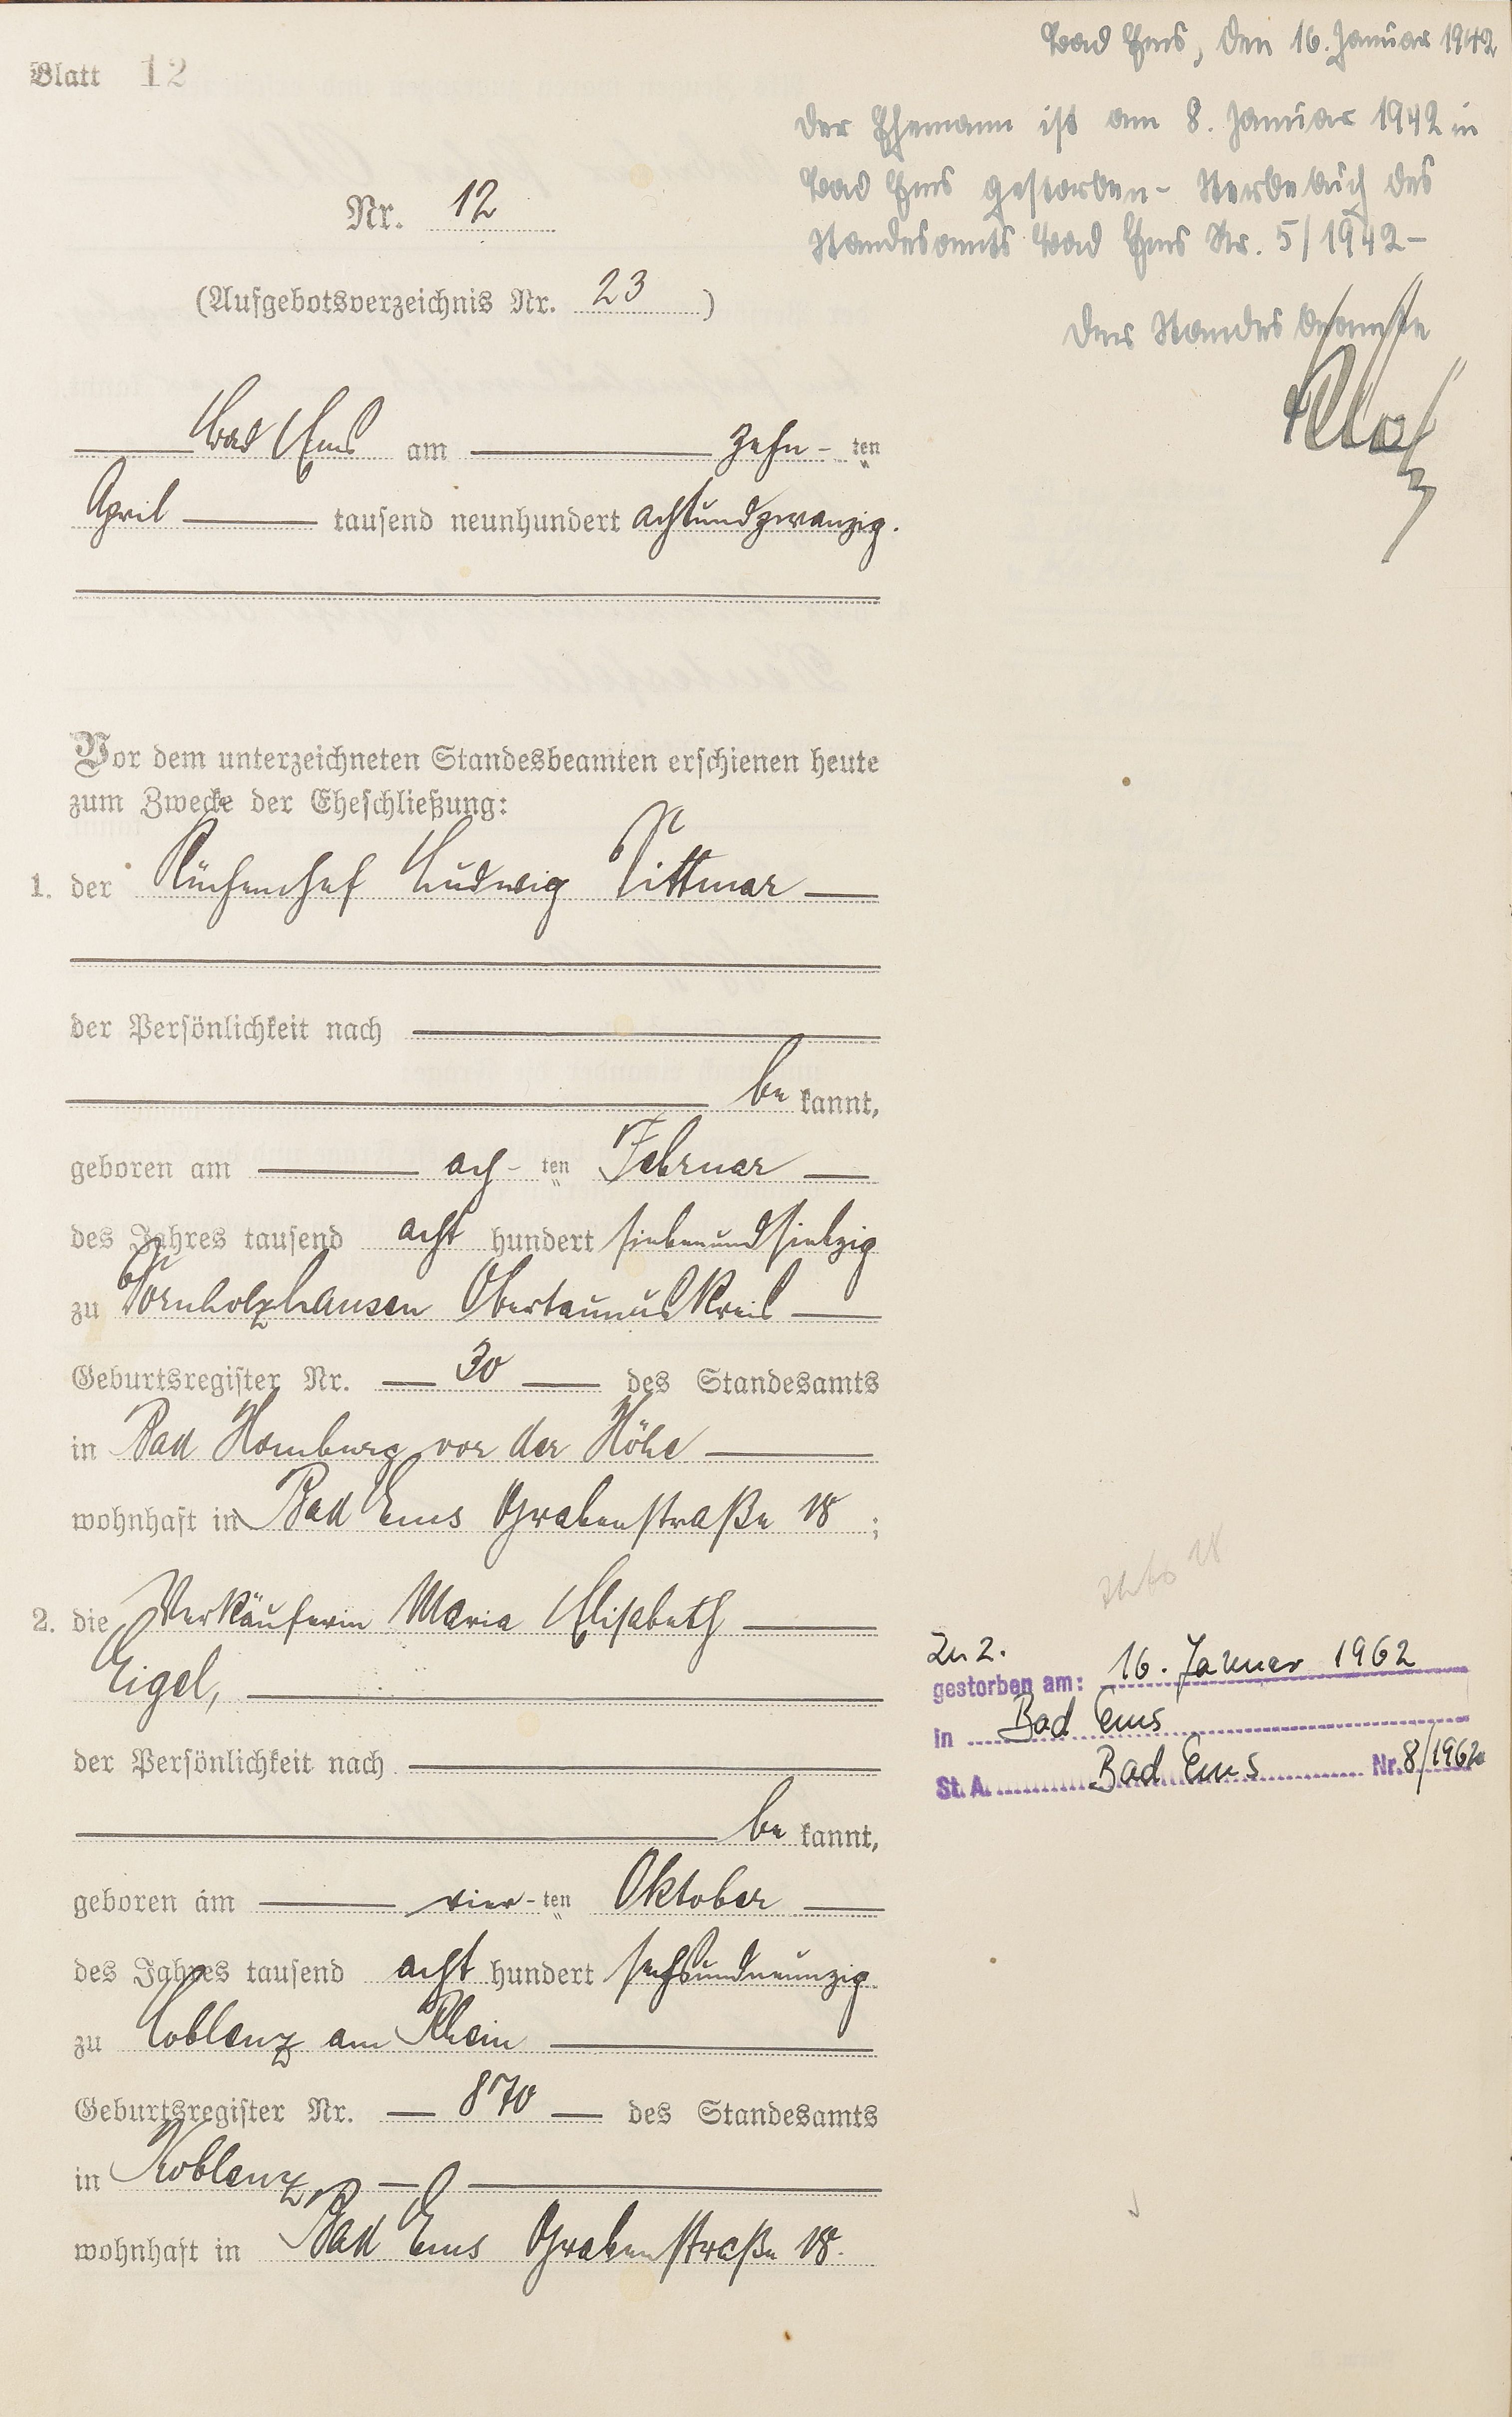 Blatt 12
Bad Ems, den 16. Januar 1942
Der Ehemann ist am 8. Januar 1942 in
Bad Ems gestorben - Sterbebuch des
Standesamts Bad Ems Nr. 5/1942 -
Der Standesbeamte
Nr. 12
(Aufgebotsverzeichnis Nr. 23)
Bad Ems am zehn-ten
April tausend neunhundert achtundzwanzig.
Vor dem unterzeichneten Standesbeamten erschienen heute
zum Zwecke der Eheschließung:
1. der Küchenchef Ludwig Dittmar
der Persönlichkeit nach
be kannt,
geboren am ach-ten Februar
des Jahres tausend acht hundert siebenundsiebzig
zu Dornholzhausen Obertaunuskreis
Geburtsregister Nr. 30 des Standesamts
in Bad Homburg vor der Höhe
wohnhaft in Bad Ems Grabenstraße 18 ;
2. die Verkäuferin Maria Elisabeth
Eigel,
der Persönlichkeit nach
be kannt,
geboren am vier-ten Oktober
des Jahres tausend acht hundert sechsundneunzig
zu Coblenz am Rhein
Geburtsregister Nr. 870 des Standesamts
in Koblenz,
wohnhaft in Bad Ems Grabenstraße 18.
Zu 2.
gestorben am: 16. Januar 1962
in Bad Ems
St. A. Bad Ems Nr. 8/1962